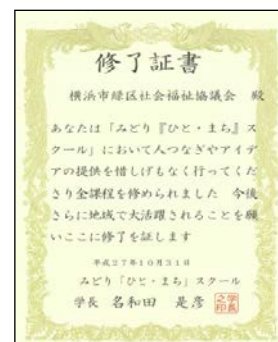 修了証書
横浜市緑区社会福祉協議会 殿
あなたは「みどり『ひと・まち』ス
クール」において人つなぎやアイデ
アの提供を惜しげもなく行ってくだ
さり全課程を修められました 今後
さらに地域で大活躍されることを願
いここに修了を証します
平成27年10月31日
みどり「ひと・まち」スクール
学長 名和田 是彦
学長之印